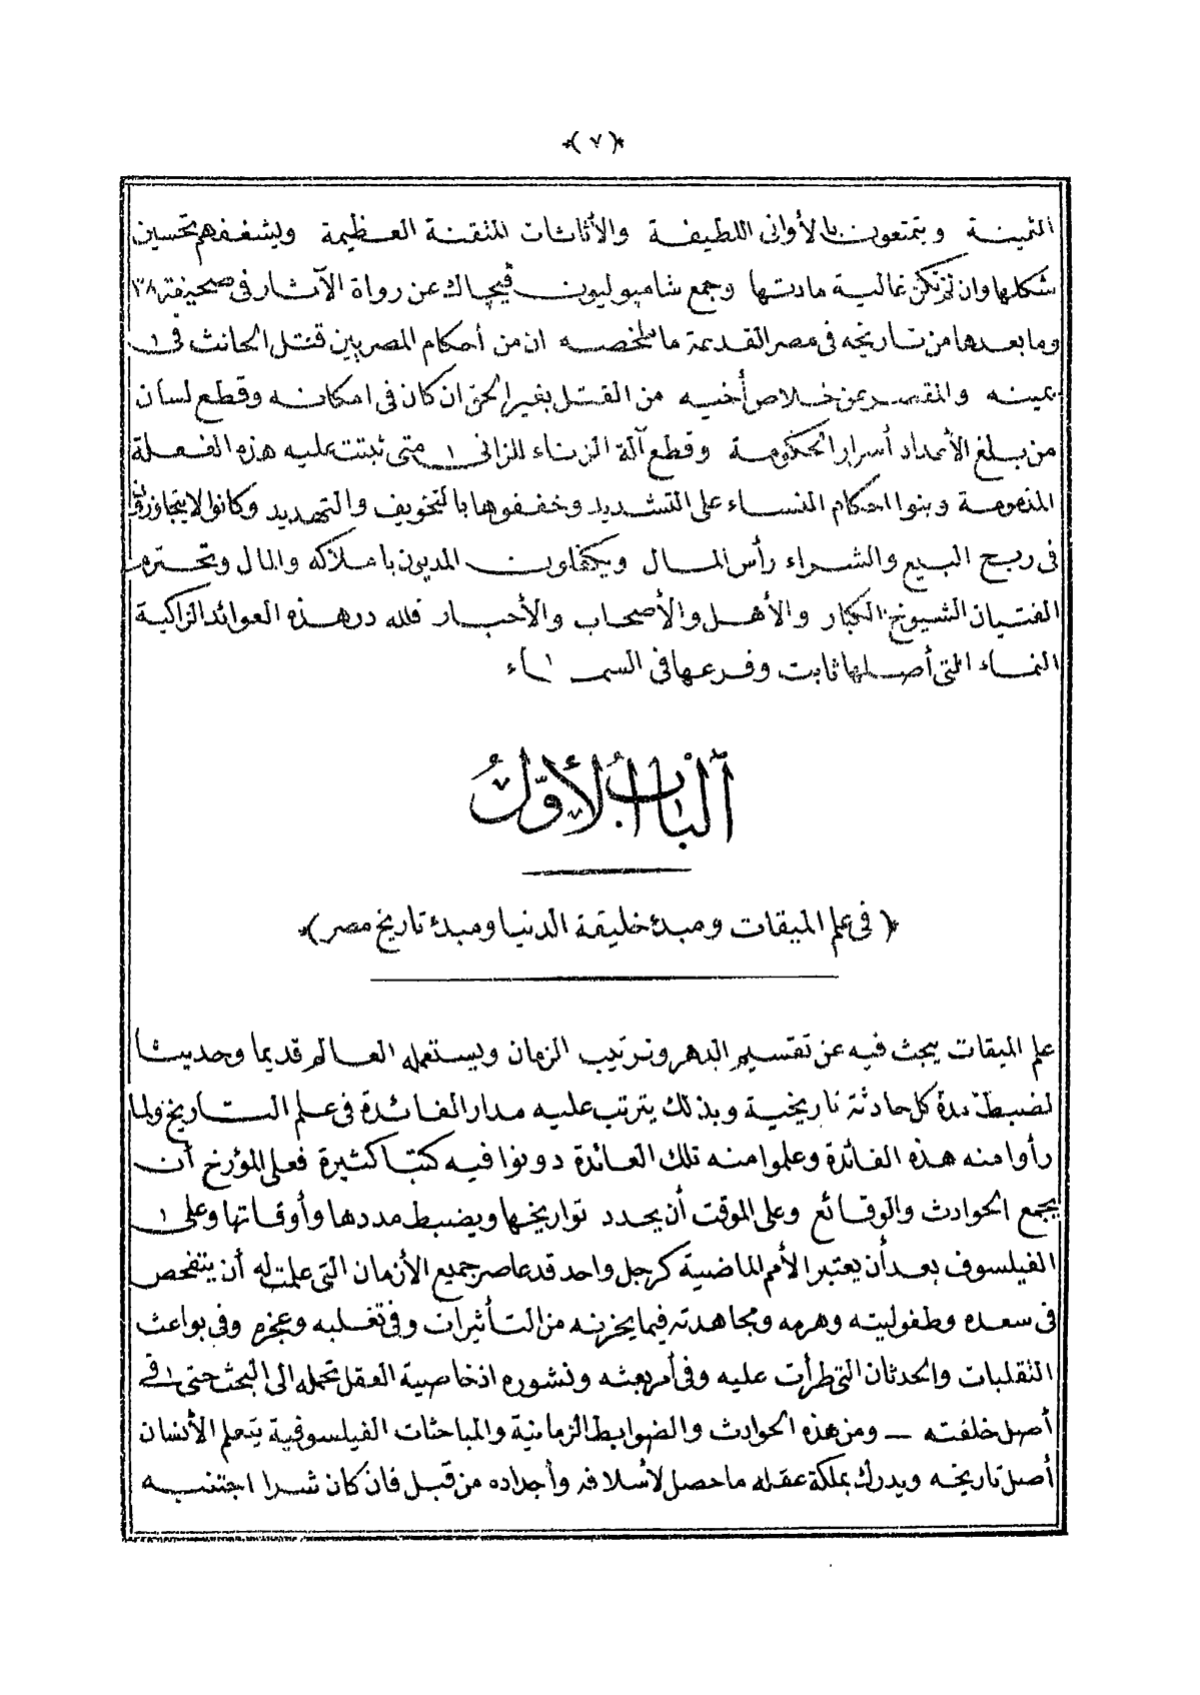 ﴿ ٧ ﴾
الثمينة ويتمتعون بالأوانى اللطيفة والأثاثات المتقنة العظيمة ويشغفهم تحسين
شكلها وان لم تكن غالية مادتها وجمع شامپوليون فيجاك عن رواة الآثار فى صحيفة ٣٨
وما بعدها من تاريخه فى مصر القديمة ما ملخصه ان من أحكام المصريين قتل الحانث فى
يمينه والمقصر عن خلاص أخيه من القتل بغير الحق ان كان فى امكانه وقطع لسان
من بلغ الأعداد أسرار الحكومة وقطع آلة الزناء للزانى متى ثبتت عليه هذه الفعلة
المذمومة وبنوا احكام النساء على التشديد وخففوها بالتخويف والتهديد وكانوا لا يتجاوزون
فى ربح البيع والشراء رأس المال ويكفلون المديون باملاكه والمال وتحترم
الفتيان الشيوخ الكبار والأهل والأصحاب والأحبار فلله در هذه العوائد الزاكية
النماء التى أصلها ثابت وفرعها فى السماء
اَلْبَابُ الْأَوَّلُ
﴿ فى علم الميقات ومبدء خليقة الدنيا ومبدء تاريخ مصر ﴾
علم الميقات يبحث فيه عن تقسيم الدهر وترتيب الزمان ويستعمله العالم قديما وحديثا
لضبط مدة كل حادثة تاريخية وبذلك يترتب عليه مدار الفائدة فى علم التاريخ ولما
رأوا منه هذه الفائدة وعلموا منه تلك العائدة دونوا فيه كتبا كثيرة فعلى المؤرخ أن
يجمع الحوادث والوقائع وعلى الموقت أن يحدد تواريخها ويضبط مددها وأوقاتها وعلى
الفيلسوف بعد أن يعتبر الأمم الماضية كرجل واحد قد عاصر جميع الأزمان التى علمت له أن يتفحص
فى سعده وطفوليته وهرمه ومجاهدته فيما يحزنه من التأثيرات وفى تغلبه وعجزه وفى بواعث
التقلبات والحدثان التى طرأت عليه وفى أمر بعثه ونشوره اذ خاصية العقل تحمله الى البحث حتى فى
أصل خلقته — ومن هذه الحوادث والضوابط الزمانية والمباحثات الفيلسوفية يتعلم الأنسان
أصل تاريخه ويدرك بملكة عقله ما حصل لأسلافه وأجداده من قبل فان كان شرا اجتنبه